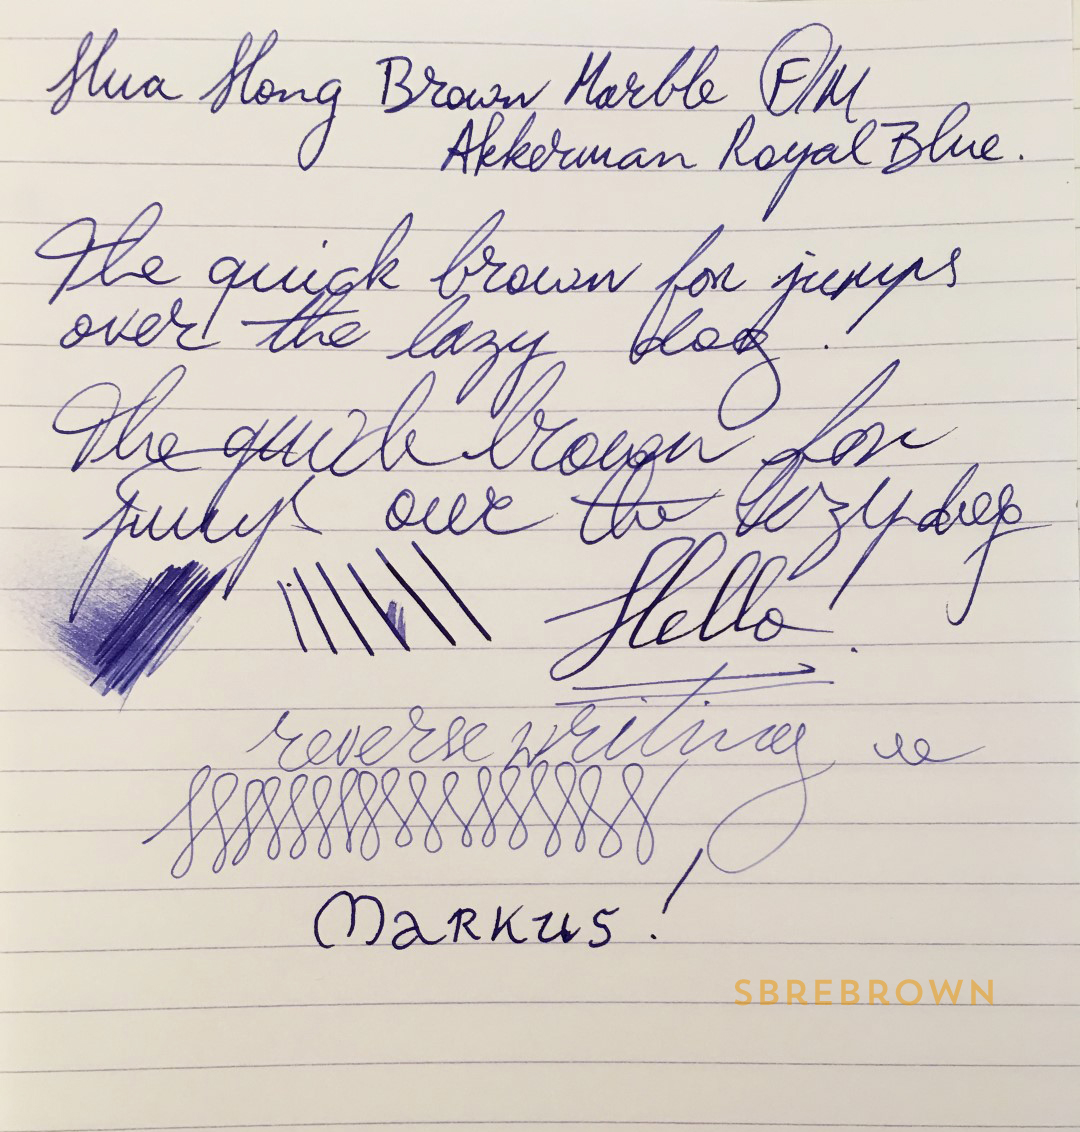 Hua Hong Brown Marble F/M
Akkerman Royal Blue.
The quick brown fox jumps
over the lazy dog!
The quick brown fox
jumps over the lazy dog
Hello!
reverse writing
Markus!
SBREBROWN